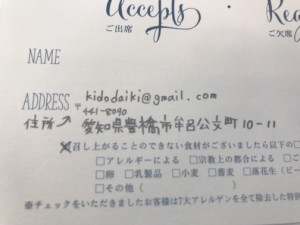 Accepts
ご出席
ご欠席
NAME
ADDRESS 〒 kidodaiki@gmail.com
441-8090
住所↗ 愛知県豊橋市牟呂公文町10-11
召し上がることのできない食材がございましたら以下の□
□アレルギーによる □宗教上の都合による □ご
□卵 □乳製品 □小麦 □蕎麦 □落花生(ピー
□その他(
※チェックをいただきましたお客様は7大アレルゲンを全て除去した特別